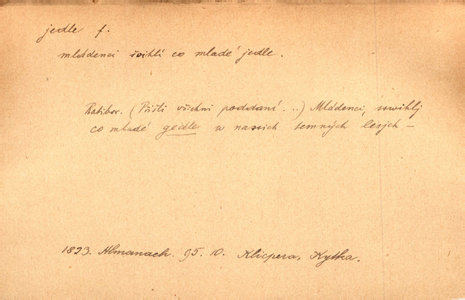 jedle f.
mládenci švihlí co mladé jedle.
Ratibor. (Přišli všichni poddaní...) Mládenci, sswihlj
co mladé gedle w nassich temných lesých –
1823. Almanach. 95. D. Klicpera, Kytka.